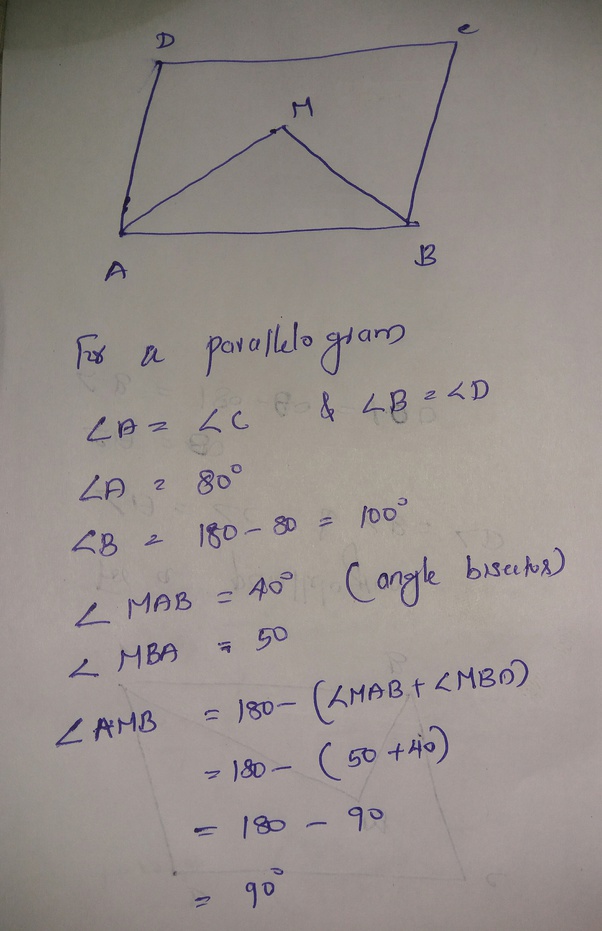 D C
M
A B
For a parallelogram
∠A = ∠C & ∠B = ∠D
∠A = 80°
∠B = 180 - 80 = 100°
∠MAB = 40° (angle bisectos)
∠MBA = 50
∠AMB = 180 - (∠MAB + ∠MBA)
= 180 - (50 + 40)
= 180 - 90
= 90°